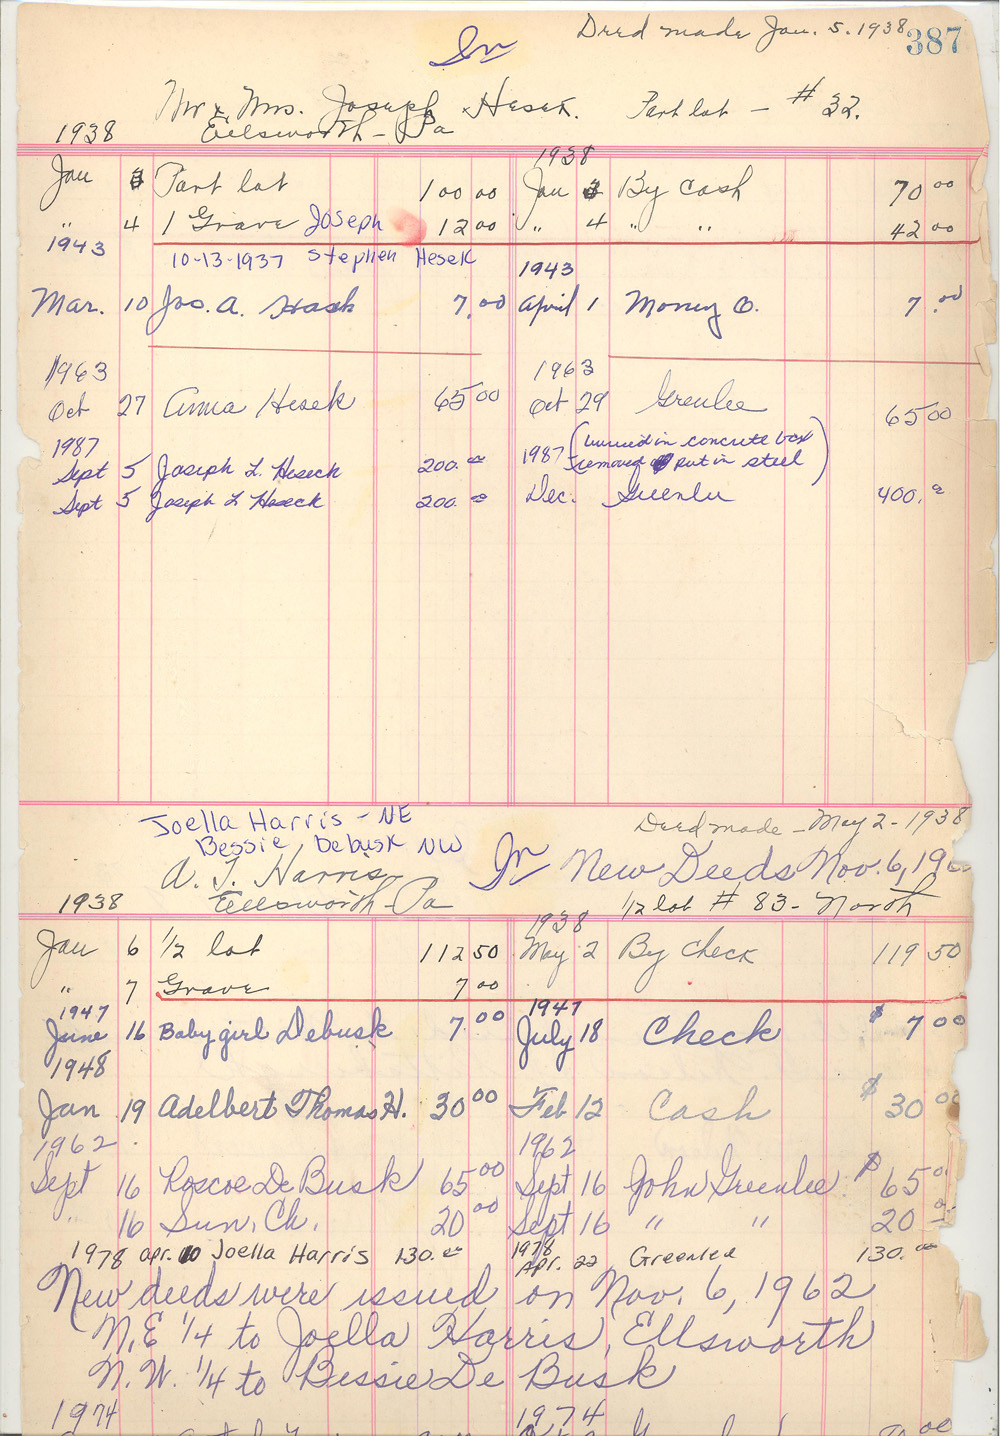 Deed made Jan. 5. 1938 387
In
Mr & Mrs. Joseph Hesek. Part lot - # 32.
1938 Ellsworth - Pa
1938
Jan 3 Part lot 100 00 Jan 3 By Cash 70 00
" 4 1 Grave Joseph 12 00 " 4 " " 42 00
1943 10-13-1937 Stephen Hesek 1943
Mar. 10 Jos. A. Hesek 7.00 April 1 Money O. 7.00
1963 1963
Oct 27 Anna Hesek 65 00 Oct 29 Greenlee 65 00
1987 1987 (buried in concrete box
Sept 5 Joseph L. Heseck 200.00 removed put in steel)
Sept 5 Joseph L Heseck 200.00 Dec. Greenlee 400.00
Joella Harris - NE Deed made - May 2 - 1938
Bessie Debusk NW In New Deeds Nov. 6, 196
A. T. Harris
1938 Ellsworth - Pa 1/2 lot # 83 - North
1938
Jan 6 1/2 lot 112 50 May 2 By Check 119 50
" 7 Grave 7 00
1947 1947
June 16 Baby girl Debusk 7.00 July 18 Check $ 7 00
1948
Jan 19 Adelbert Thomas H. 30 00 Feb 12 Cash $ 30 00
1962 1962
Sept 16 Roscoe De Busk 65 00 Sept 16 John Greenlee $ 65 0
" 16 Sun. Ch. 20 00 Sept 16 " " 20
1978 Apr. 10 Joella Harris 130.00 1978 Apr. 22 Greenlee 130.00
New deeds were issued on Nov. 6, 1962
N.E 1/4 to Joella Harris, Ellsworth
N.W. 1/4 to Bessie De Busk
1974 1974